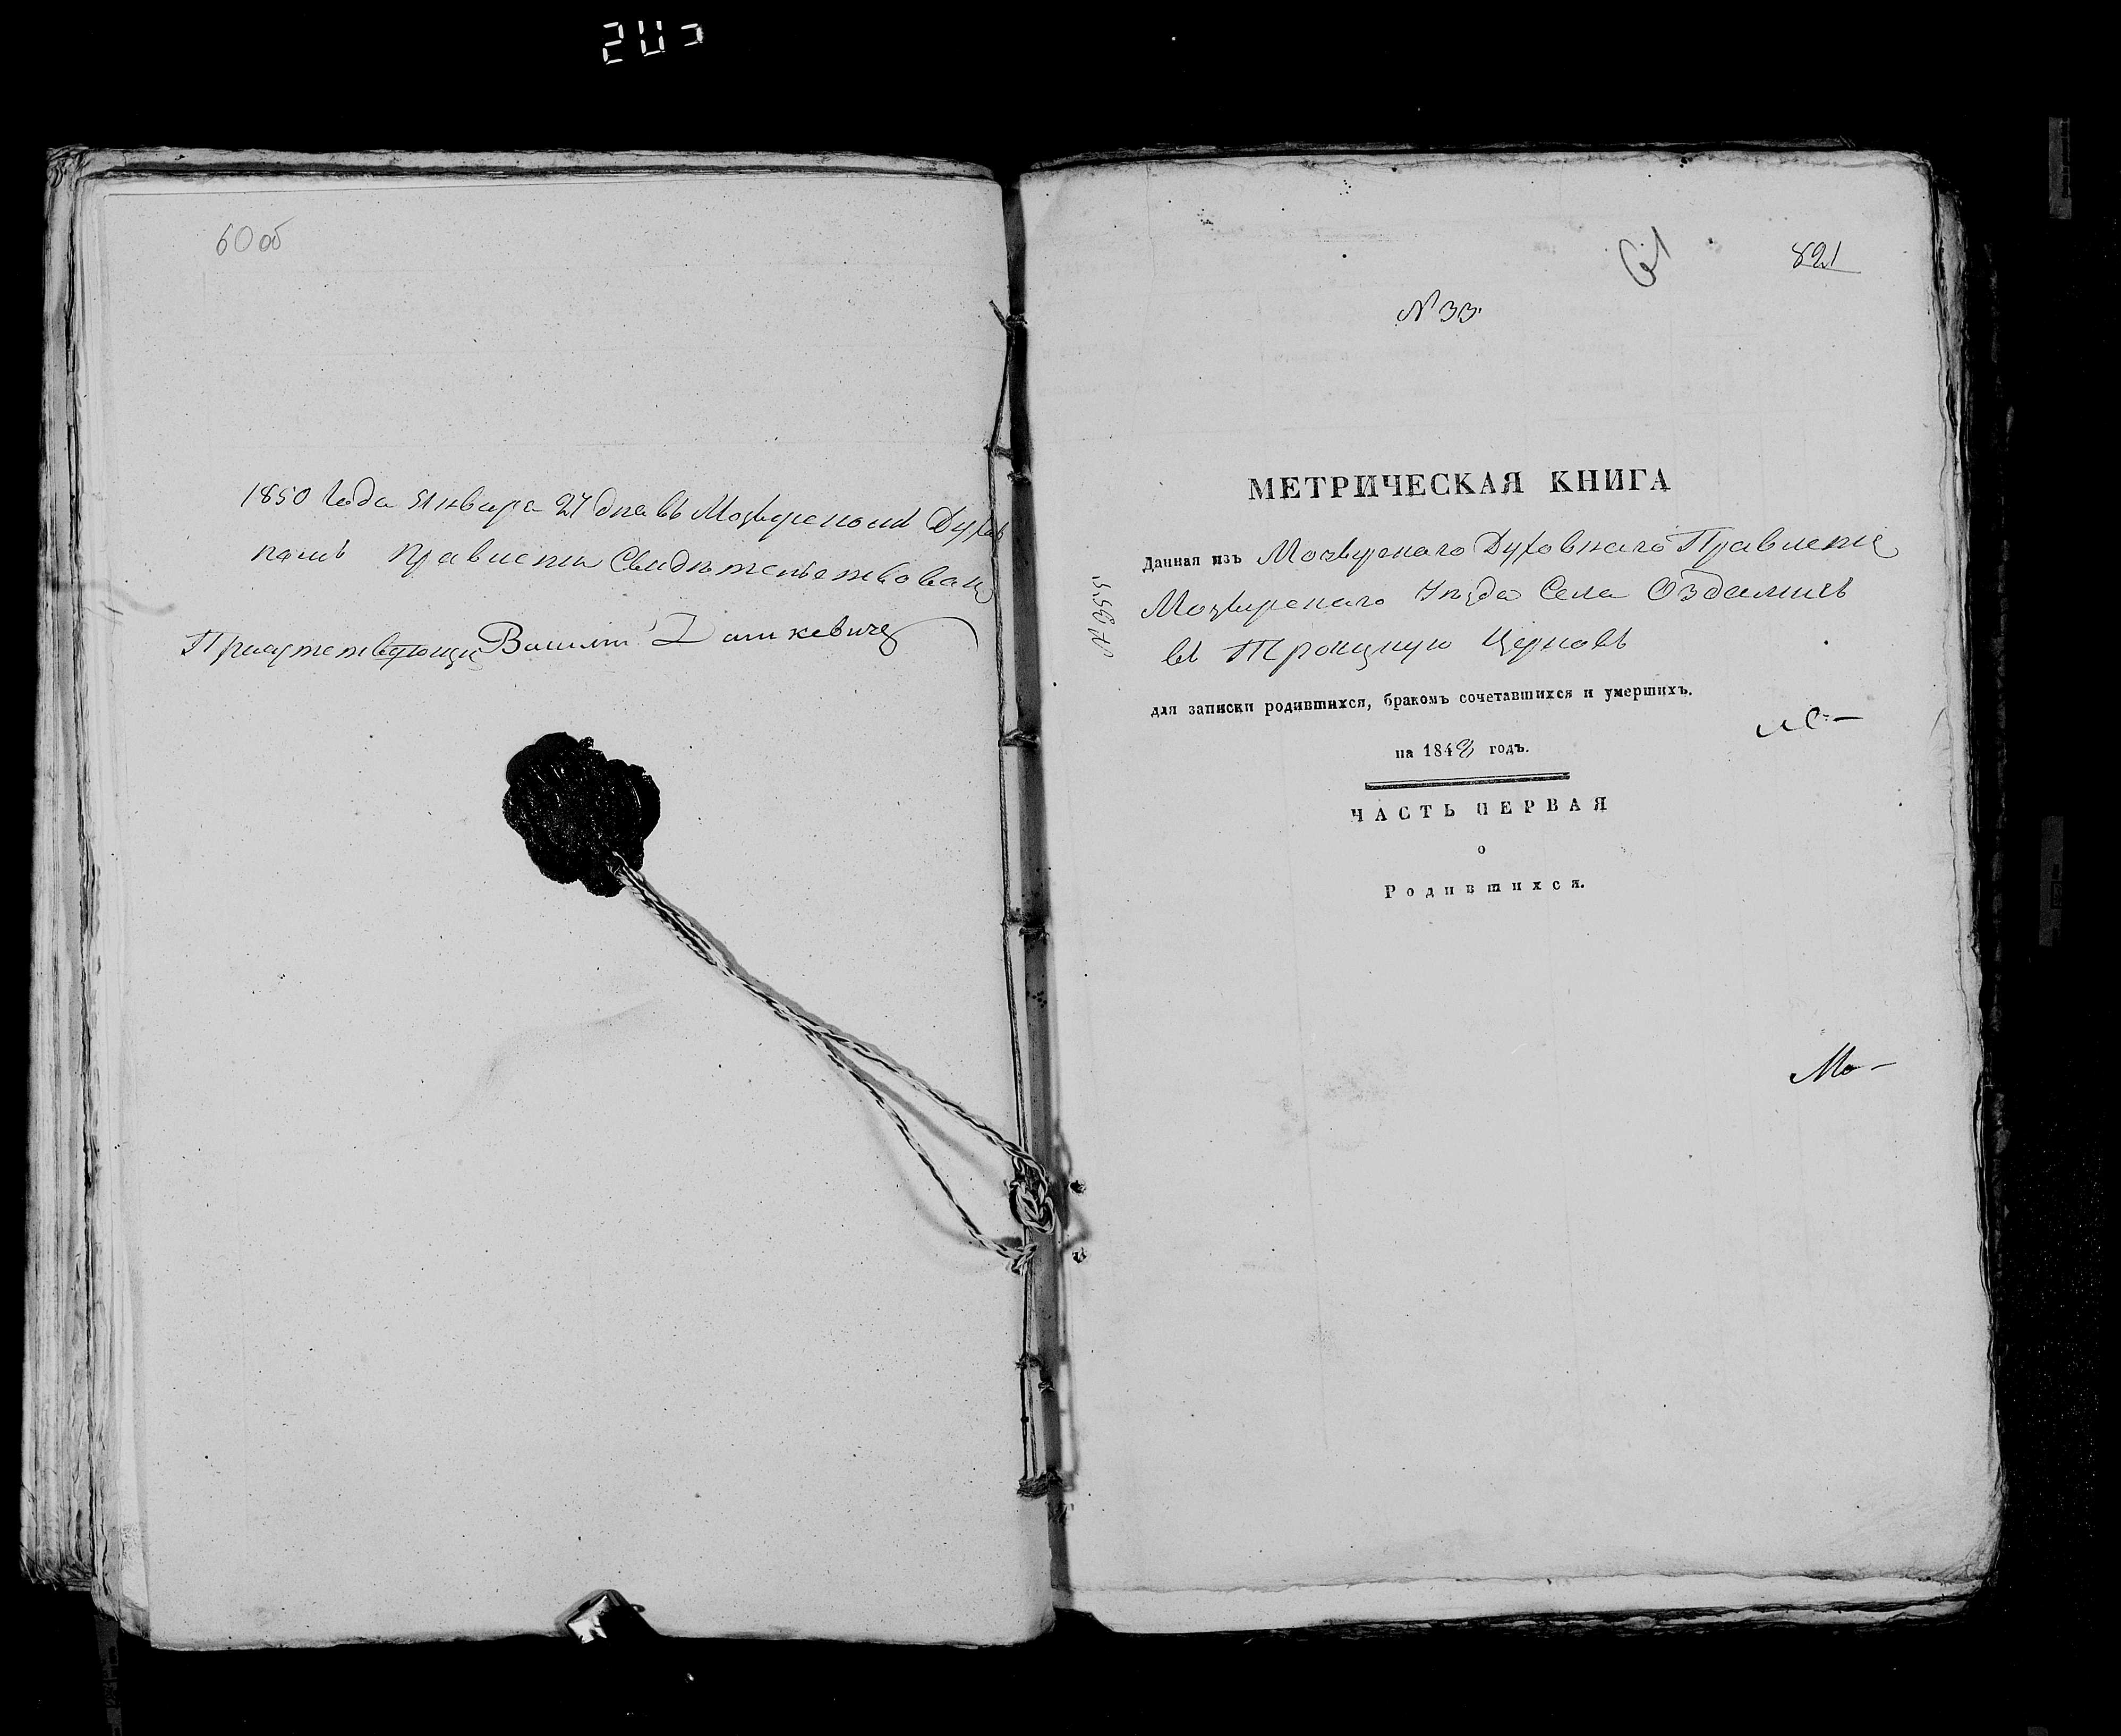 60 об
1850 года Января 27 дня въ Мозырскомъ Духов
номъ Правленіи Свидѣтельствовалъ
Присутствующій Василій Дашкевичъ
61
821
№ 33.
МЕТРИЧЕСКАЯ КНИГА
Данная изъ Мозырскаго Духовнаго Правленія
Мозырскаго Уѣзда Села Оздамичъ
въ Троицкую Церковь
для записки родившихся, бракомъ сочетавшихся и умершихъ.
на 1848 годъ.
ЧАСТЬ ПЕРВАЯ
о
Родившихся.
Мо-